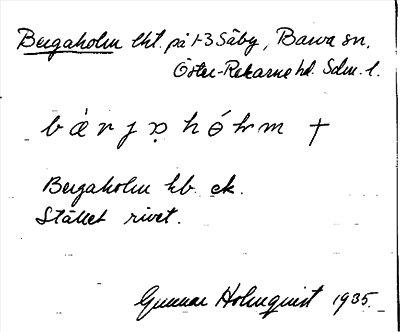 Bergaholm lht. på 1-3 Säby, Barva sn,
Öster-Rekarne hd. Sdm. l.
bǽrjaˌhóhm †
Bergaholm hb. ek.
Stället rivet.
Gunnar Holmquist 1935.